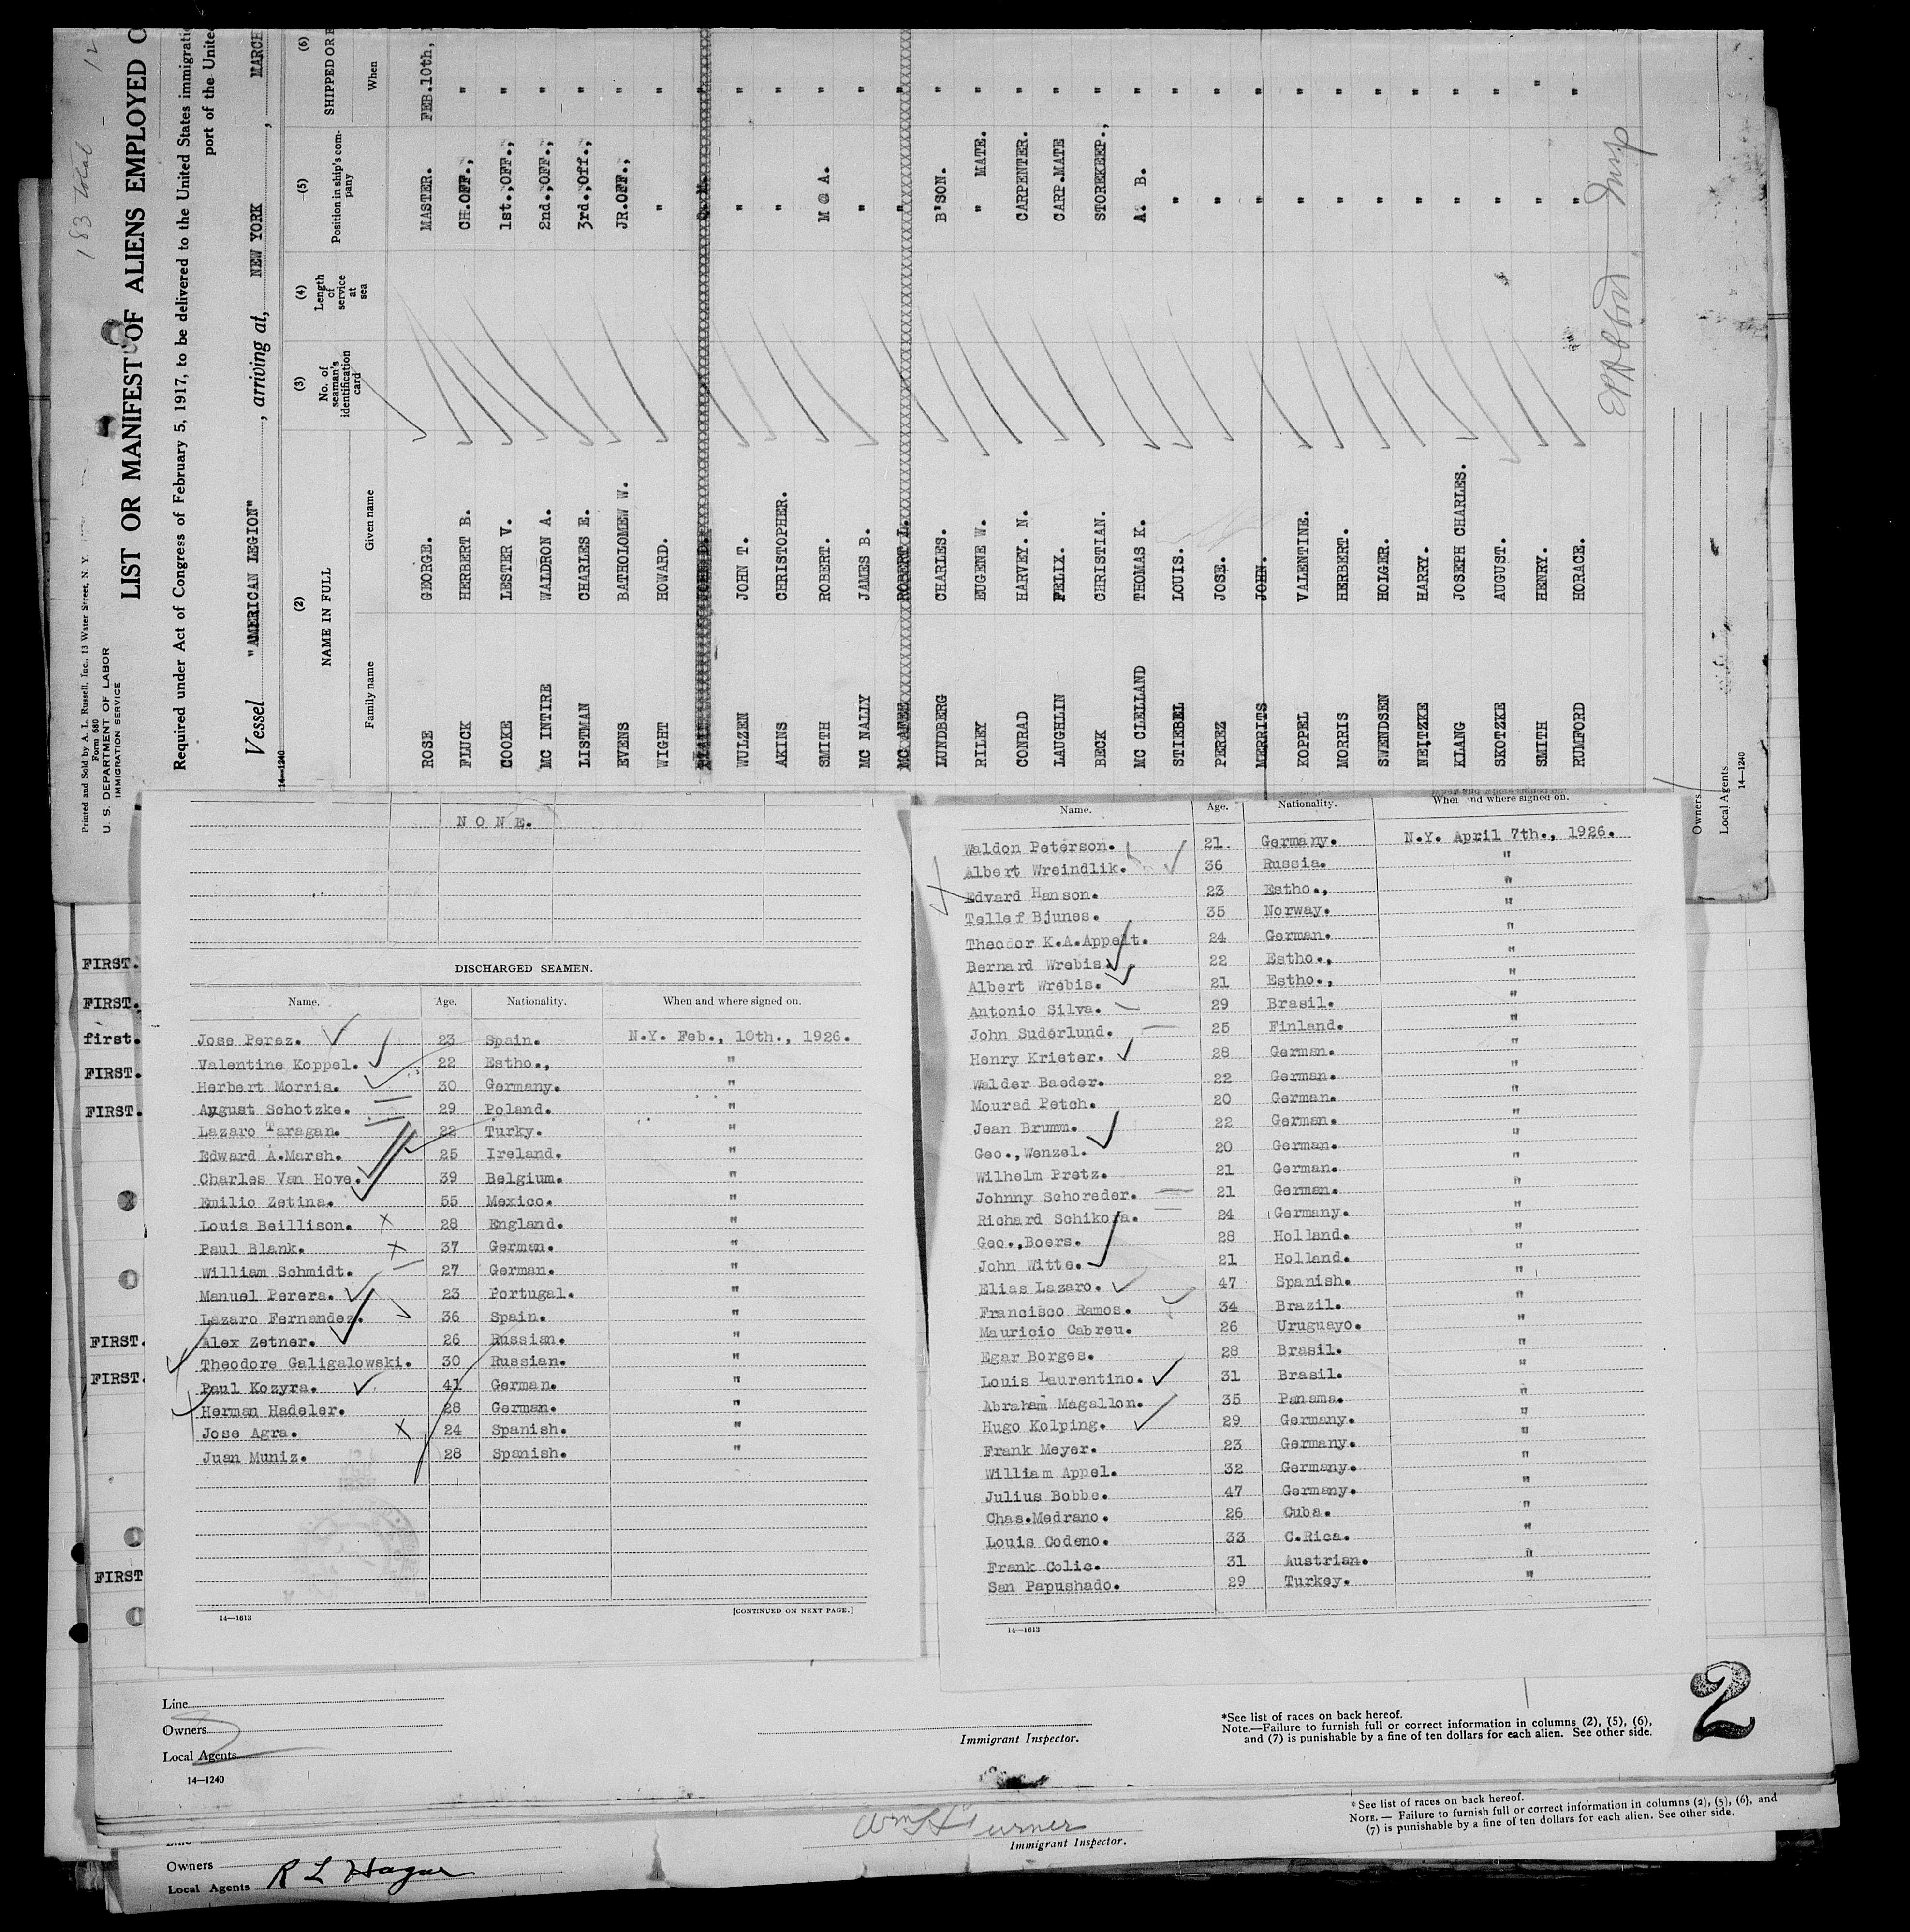 183 total - 12
Printed and Sold by A. L. Russell, Inc., 13 Water Street, N. Y.
Form 680
U. S. DEPARTMENT OF LABOR
IMMIGRATION SERVICE
LIST OR MANIFEST OF ALIENS EMPLOYED O
Required under Act of Congress of February 5, 1917, to be delivered to the United States immigratio
port of the United
Vessel "AMERICAN LEGION", arriving at, NEW YORK, MARCH
14—1240
(2) (3) (4) (5) (6)
NAME IN FULL No. of seaman's identification card Length of service at sea Position in ship's company SHIPPED OR E
Family name Given name When
ROSE GEORGE. MASTER. FEB.10th,
FLUCK HERBERT B. CH.OFF., "
COOKE LESTER V. 1st.,OFF., "
MC INTIRE WALDRON A. 2nd.,OFF., "
LISTMAN CHARLES E. 3rd.,Off., "
EVENS BATHOLOMEW W. JR.OFF., "
WIGHT HOWARD. " "
WULZEN JOHN T. " "
AKINS CHRISTOPHER. " "
SMITH ROBERT. M @ A. "
MC NALLY JAMES B. " "
MC AFEE ROBERT L. " "
LUNDBERG CHARLES. B'SON. "
RILEY EUGENE W. " MATE. "
CONRAD HARVEY. N. CARPENTER. "
LAUGHLIN FELIX. CARP.MATE "
BECK CHRISTIAN. STOREKEEP., "
MC CLELLAND THOMAS K. A. B. "
STIEBEL LOUIS. " "
PEREZ JOSE. " "
MERRITS JOHN. " "
KOPPEL VALENTINE. " "
MORRIS HERBERT. " "
SWENDSEN HOLGER. " "
NEITZKE HARRY. " "
KLANG JOSEPH CHARLES. " "
SKOTZKE AUGUST. " "
SMITH HENRY. " "
RUMFORD HORACE. " "
Owners
Local Agents
14—1240
NONE.
DISCHARGED SEAMEN.
Name. Age. Nationality. When and where signed on.
Jose Perez. 23 Spain. N.Y. Feb., 10th., 1926.
Valentine Koppel. 22 Estho., "
Herbert Morris. 30 Germany. "
August Schotzke. 29 Poland. "
Lazaro Taragan. 22 Turky. "
Edward A.Marsh. 25 Ireland. "
Charles Van Hove. 39 Belgium. "
Emilio Zetina. 55 Mexico. "
Louis Beillison. 28 England. "
Paul Blank. 37 German. "
William Schmidt. 27 German. "
Manuel Perera. 23 Portugal. "
Lazaro Fernandez. 36 Spain. "
Alex Zetner. 26 Russian. "
Theodore Galigalowski. 30 Russian. "
Paul Kozyra. 41 German. "
Herman Hadeler. 28 German. "
Jose Agra. 24 Spanish. "
Juan Muniz. 28 Spanish. "
14—1613 [CONTINUED ON NEXT PAGE.]
Name. Age. Nationality. When and where signed on.
Waldon Peterson. 21. Germany. N.Y. April 7th., 1926.
Albert Wreindlik. 36 Russia. "
Edvard Hanson. 23 Estho., "
Tellef Bjunes. 35 Norway. "
Theodor K.A.Appelt. 24 German. "
Bernard Wrebis. 22 Estho., "
Albert Wrebis. 21 Estho., "
Antonio Silva. 29 Brasil. "
John Suderlund. 25 Finland. "
Henry Krieter. 28 German. "
Walder Baeder. 22 German. "
Mourad Petch. 20 German. "
Jean Brumm. 22 German. "
Geo.,Wenzel. 20 German. "
Wilhelm Pretz. 21 German. "
Johnny Schoreder. 21 German. "
Richard Schikora. 24 Germany. "
Geo.,Boers. 28 Holland. "
John Witte. 21 Holland. "
Elias Lazaro. 47 Spanish. "
Francisco Ramos. 34 Brazil. "
Mauricio Cabreu. 26 Uruguayo. "
Egar Borges. 28 Brasil. "
Louis Laurentino. 31 Brasil. "
Abraham Magallon. 35 Panama. "
Hugo Kolping. 29 Germany. "
Frank Meyer. 23 Germany. "
William Appel. 32 Germany. "
Julius Bobbe. 47 Germany. "
Chas.Medrano. 26 Cuba. "
Louis Codeno. 33 C.Rica. "
Frank Colic. 31 Austrian. "
San Papushado. 29 Turkey. "
14—1613
FIRST.
FIRST.
first.
FIRST.
FIRST.
FIRST.
FIRST.
FIRST
Line
Owners
Local Agents
14—1240
Immigrant Inspector.
*See list of races on back hereof.
Note.—Failure to furnish full or correct information in columns (2), (5), (6),
and (7) is punishable by a fine of ten dollars for each alien. See other side.
2
* See list of races on back hereof.
NOTE. — Failure to furnish full or correct information in columns (2), (5), (6), and
(7) is punishable by a fine of ten dollars for each alien. See other side.
Wm H Turner
Immigrant Inspector.
Line
Owners
Local Agents R L Hague